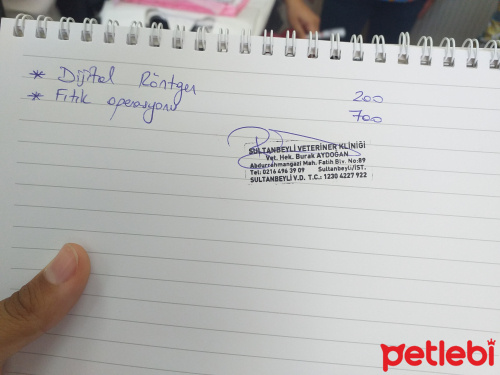 * Dijital Röntgen 200
* Fıtık operasyonu 700
SULTANBEYLİ VETERİNER KLİNİĞİ
Vet. Hek. Burak AYDOĞAN
Abdurrahmangazi Mah. Fatih Blv. No:89
Tel: 0216 496 39 09 Sultanbeyli/İST.
SULTANBEYLİ V.D. T.C.: 1230 4227 922
petlebi